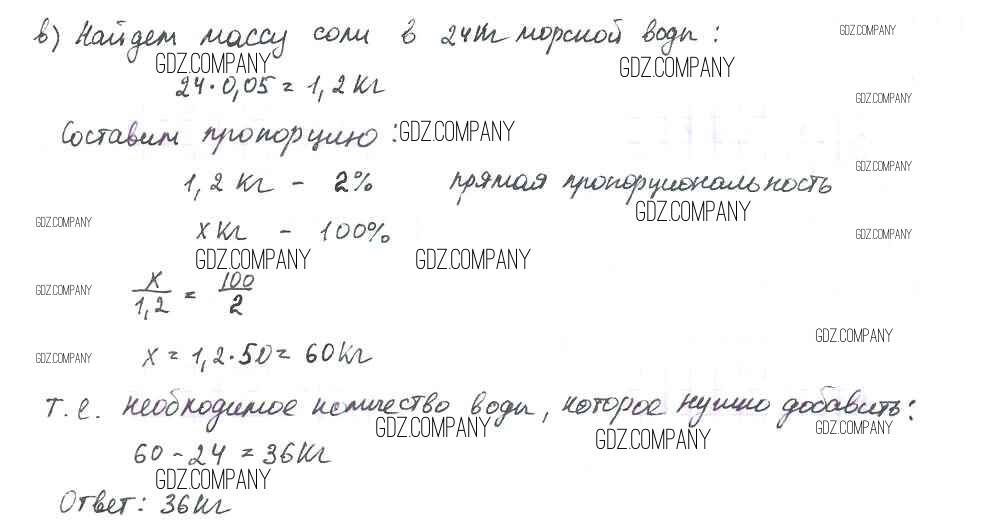 в) Найдем массу соли в 24кг морской воды:
GDZ.COMPANY
GDZ.COMPANY
GDZ.COMPANY
24·0,05 = 1,2 кг
GDZ.COMPANY
Составим пропорцию:
GDZ.COMPANY
GDZ.COMPANY
1,2 кг - 2% прямая пропорциональность
GDZ.COMPANY
GDZ.COMPANY
x кг - 100%
GDZ.COMPANY
GDZ.COMPANY
GDZ.COMPANY
GDZ.COMPANY
x/1,2 = 100/2
GDZ.COMPANY
GDZ.COMPANY
x = 1,2·50 = 60кг
т.е. необходимое количество воды, которое нужно добавить:
GDZ.COMPANY
GDZ.COMPANY
GDZ.COMPANY
60 - 24 = 36кг
GDZ.COMPANY
Ответ: 36кг